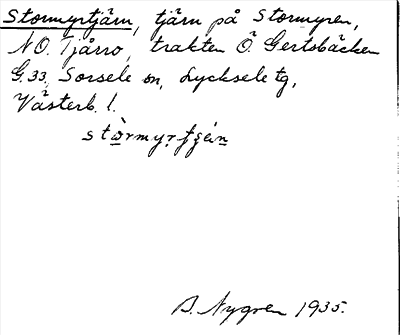 Stormyrtjärn, tjärn på Stormyren,
NO. Tjårro, trakten Ö. Gertsbäcken
G.33, Sorsele sn, Lycksele tg,
Västerb. l.
stòrmyrtjén
B. Nygren 1935.